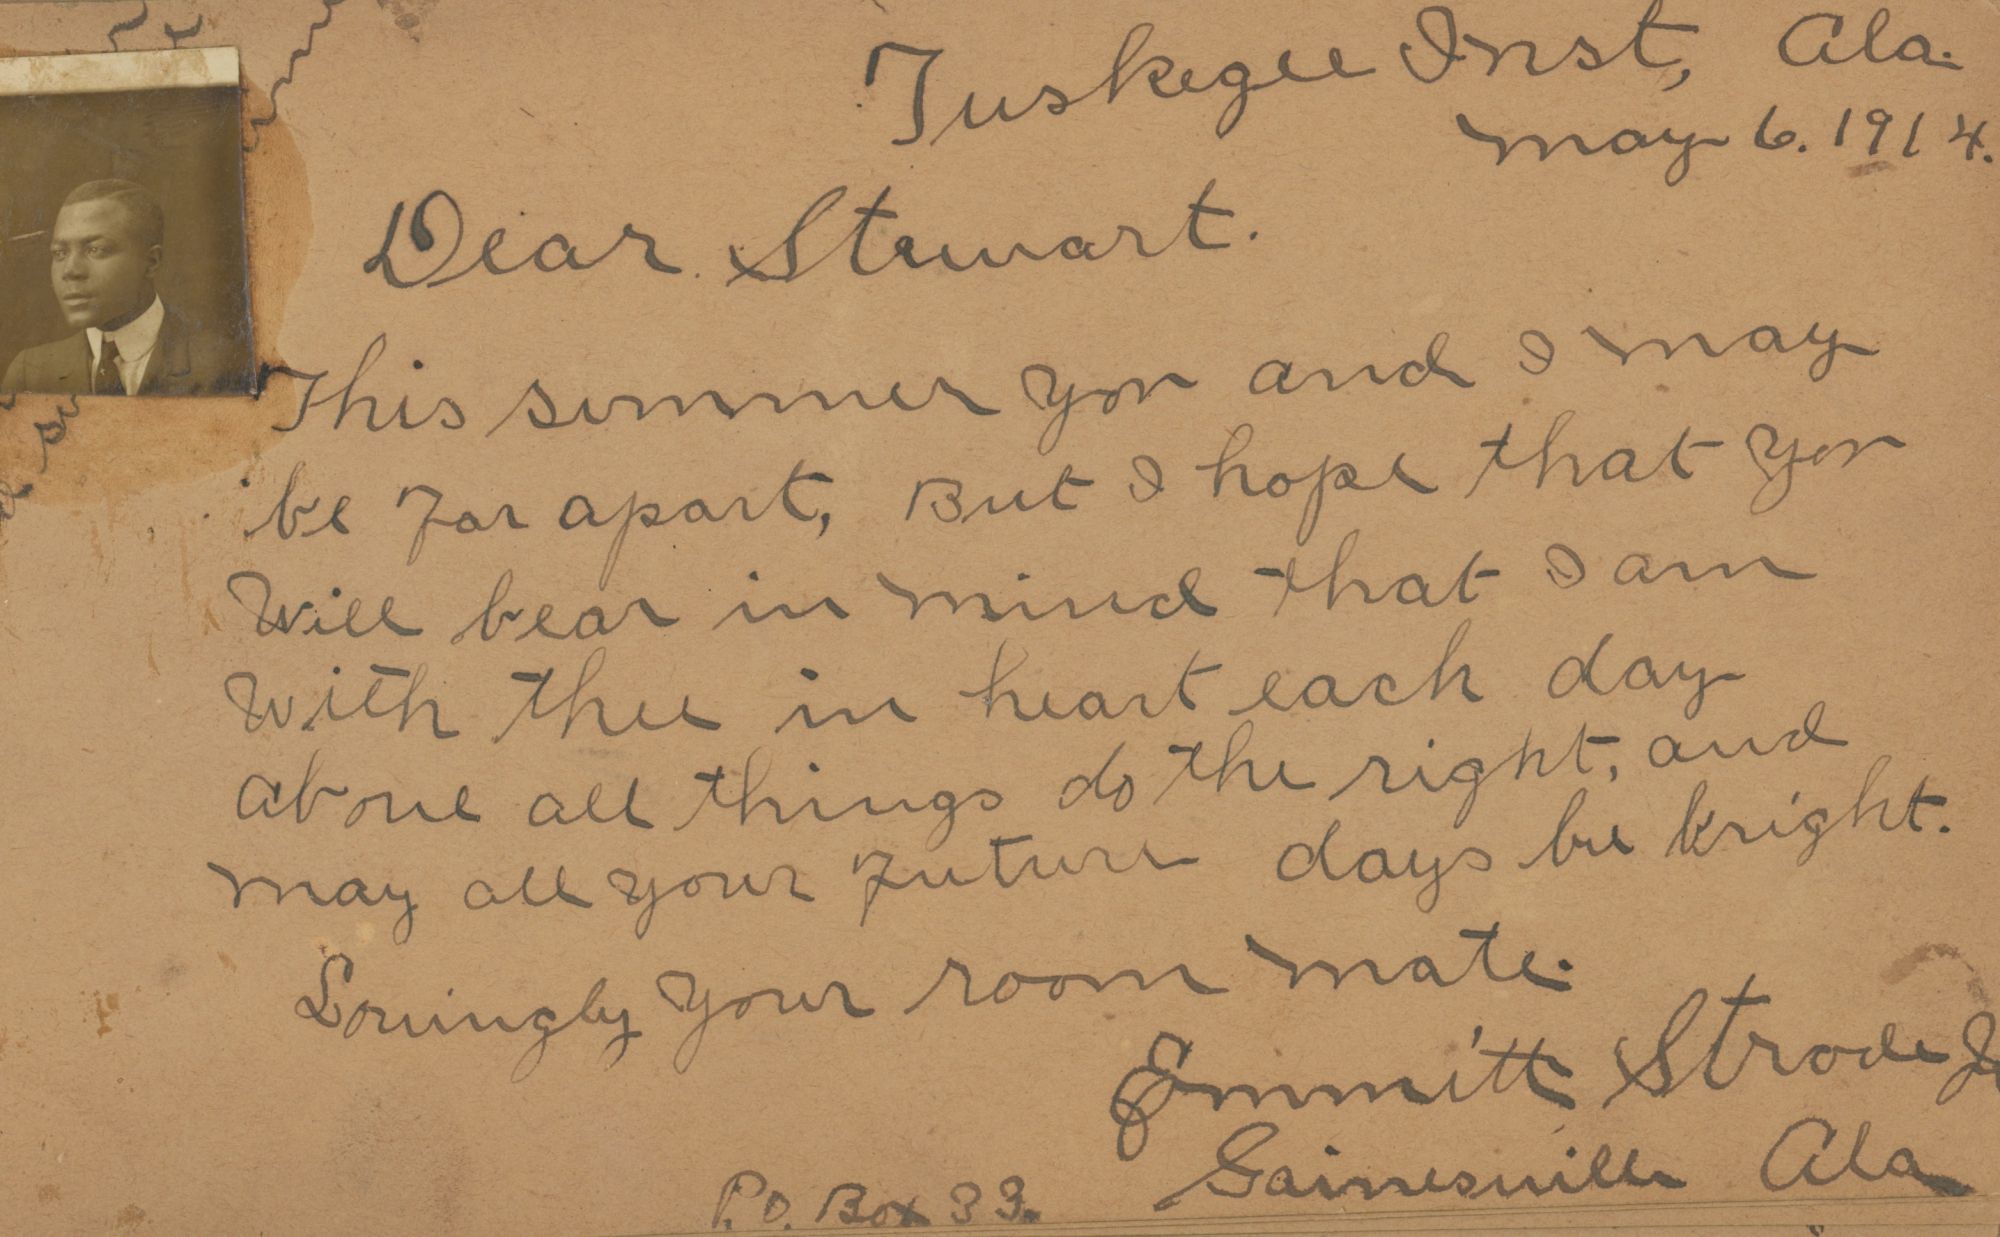 Tuskegee Inst, Ala.
May 6. 1914.
Dear Stewart.
This summer you and I may
be far apart, But I hope that you
will bear in mind that I am
with thee in heart each day
above all things do the right, and
may all your future days be bright.
Lovingly your room mate.
Emmitt Strode J
Gainesville Ala
P.O. Box 33.